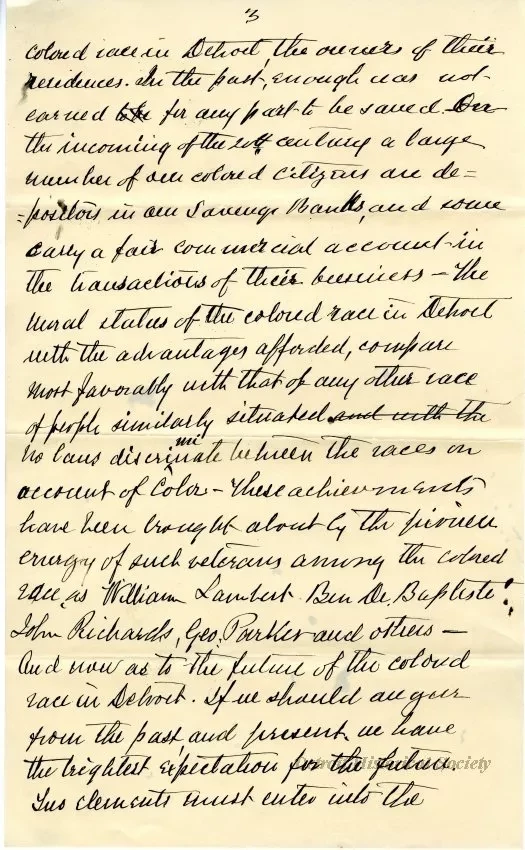 3
colored race in Detroit, the owners of their
residences. In the past, enough was not
earned for any part to be saved. On
the incoming of the 20th century a large
number of our colored citizens are de=
=positors in our Savings Banks, and some
carry a fair commercial account in
the transactions of their business – The
moral status of the colored race in Detroit
with the advantages afforded, compare
most favorably with that of any other race
of people similarly situated and with the
No laws discriminate between the races on
account of Color – These achievements
have been brought about by the pioneer
energy of such veterans among the colored
race as William Lambert Ben De. Baptiste.
John Richards, Geo. Parker and others –
And now as to the future of the colored
race in Detroit. If we should augur
from the past, and present, we have
the brightest expectation for the future.
Detroit Historical Society
Two elements must enter into the